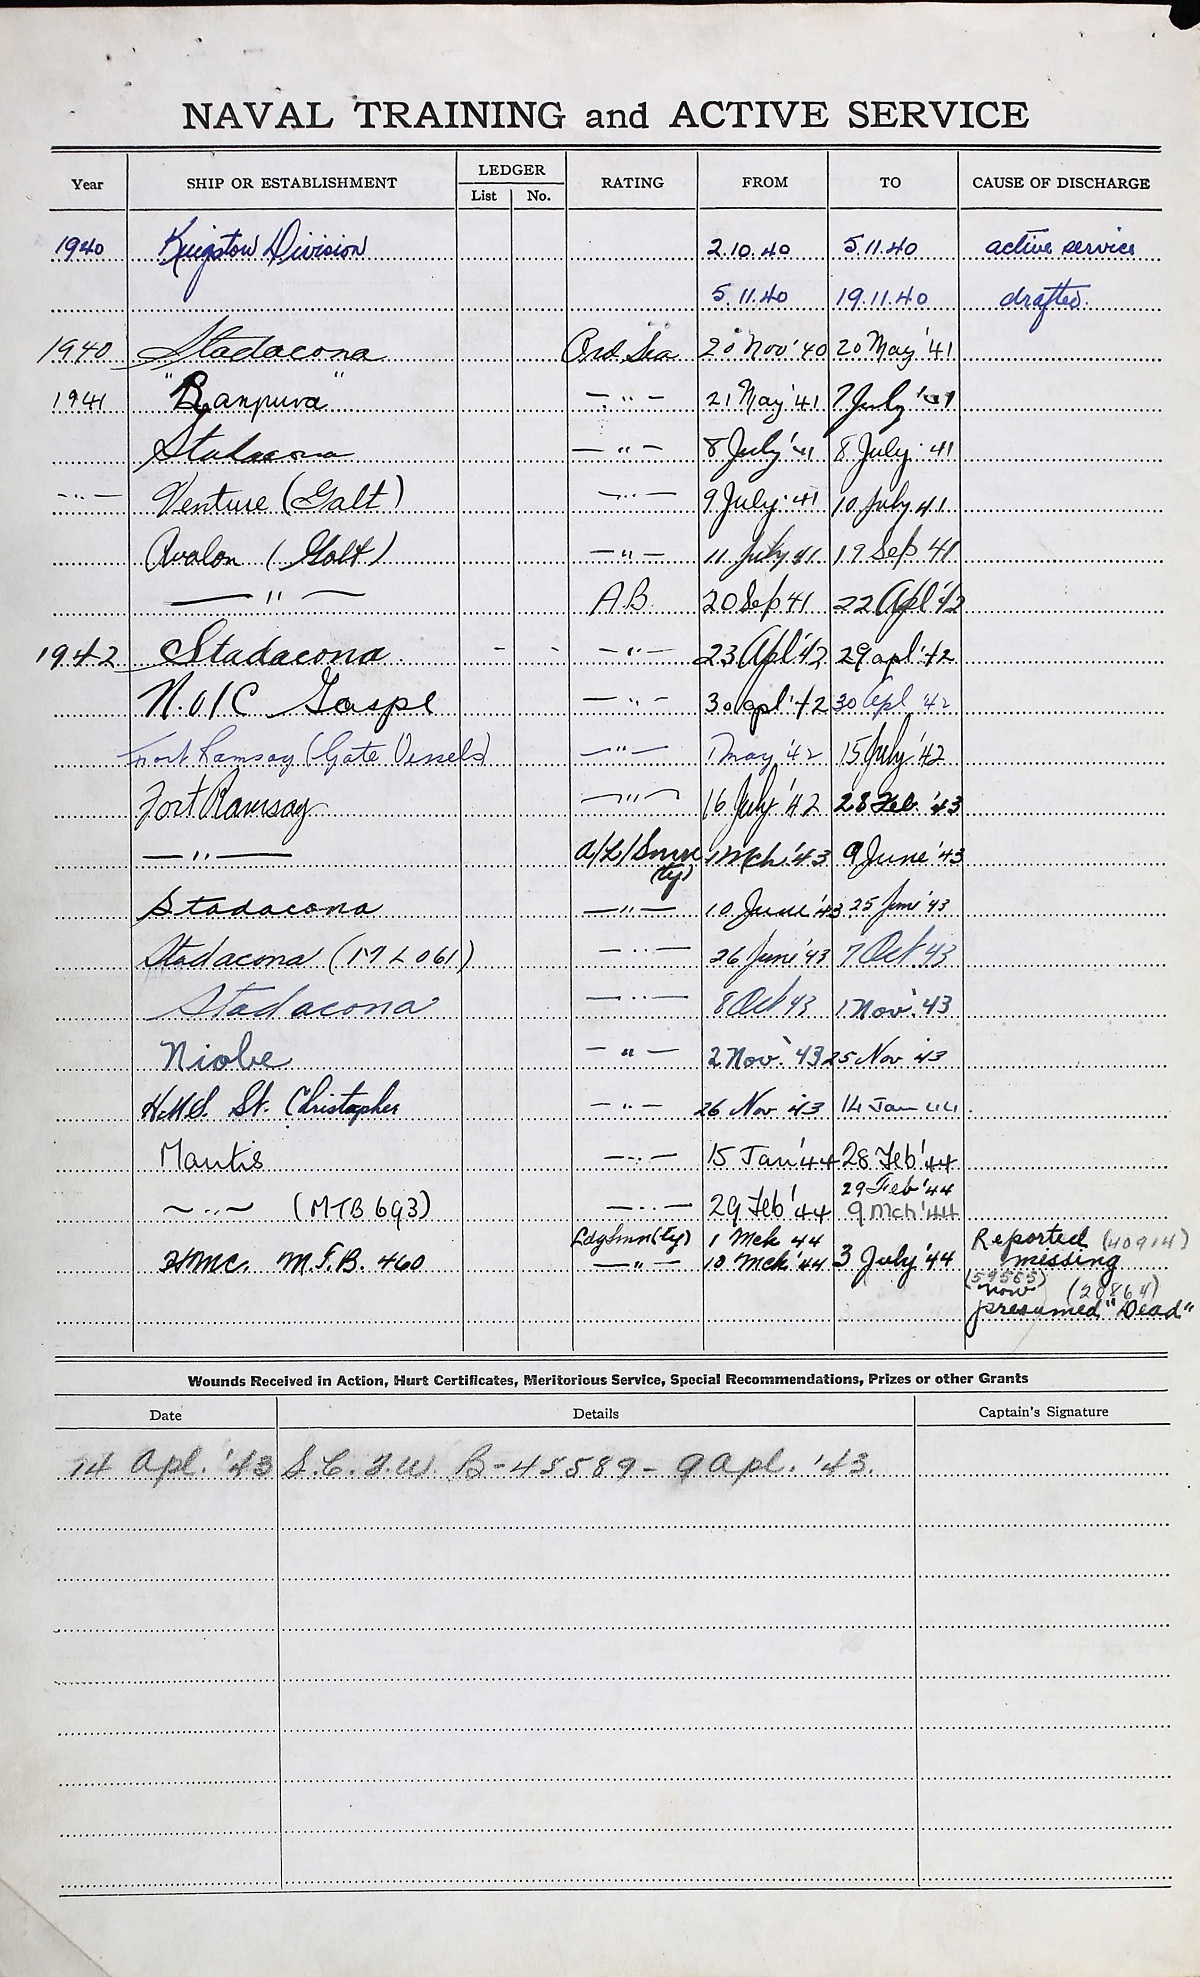 NAVAL TRAINING and ACTIVE SERVICE
Year SHIP OR ESTABLISHMENT LEDGER List No. RATING FROM TO CAUSE OF DISCHARGE
1940 Kingston Division 2.10.40 5.11.40 active service
5.11.40 19.11.40 drafted.
1940 Stadacona Ord Sea 20 Nov '40 20 May '41
1941 "Ranpura" — " — 21 May '41 7 July '41
Stadacona — " — 8 July '41 8 July '41
— " — Venture (Galt) — " — 9 July '41 10 July 41
Avalon (Galt) — " — 11 July 41 19 Sep 41
— " — A B 20 Sep 41 22 Apl '42
1942 Stadacona - - — " — 23 Apl '42 29 apl '42
N.O/C Gaspe — " — 30 apl '42 30 Apl '42
Fort Ramsay (Gate Vessels) — " — 1 may '42 15 July '42
Fort Ramsay — " — 16 July '42 28 Feb '43
— " — A/L/Smn (ty) 1 Mch '43 9 June '43
Stadacona — " — 10 June '43 25 June '43
Stadacona (ML 061) — " — 26 June '43 7 Oct 43
Stadacona — " — 8 Oct 43 1 Nov. '43
Niobe — " — 2 Nov. '43 25 Nov '43
H.M.S. St. Christopher — " — 26 Nov '43 14 Jan 44.
Mantis — " — 15 Jan '44 28 Feb '44
— " — (MTB 693) — " — 29 Feb '44 29 Feb '44 9 Mch '44
Ldg Smn (ty) 1 Mch 44 Reported (40914)
HMC. M.T.B. 460 — " — 10 Mch '44 3 July '44 missing
(59565) now (20864)
presumed "Dead"
Wounds Received in Action, Hurt Certificates, Meritorious Service, Special Recommendations, Prizes or other Grants
Date Details Captain's Signature
14 Apl. '43 B-45589 - 9 Apl. '43.